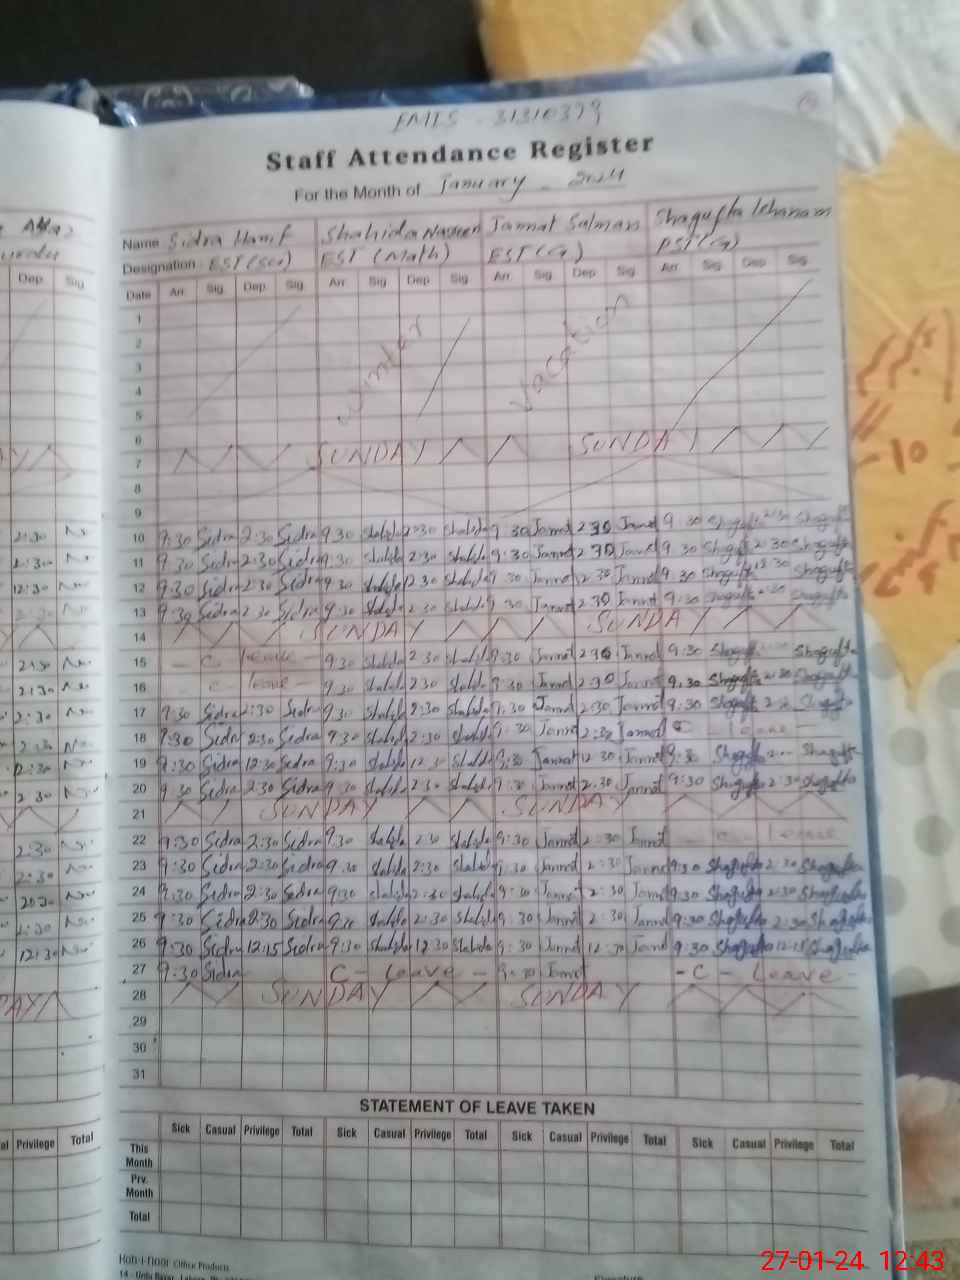 EMIS - 31310379
Staff Attendance Register
For the Month of January - 2024
Name Sidra Hanif Shahida Nasreen Jannat Salman Shagufta Khanam
Designation EST (Sci) EST (Math) EST (G) PST (G)
Dep. Sig. Date Arr. Sig. Dep. Sig. Arr. Sig. Dep. Sig. Arr. Sig. Dep. Sig. Arr. Sig. Dep. Sig.
1
2
3 winter vacation
4
5
6
7 SUNDAY SUNDAY
8
9
2:30 10 9:30 Sidra 2:30 Sidra 9:30 Shahida 2:30 Shahida 9:30 Jannat 2:30 Jannat 9:30 Shagufta 2:30 Shagufta
2:30 11 9:30 Sidra 2:30 Sidra 9:30 Shahida 2:30 Shahida 9:30 Jannat 2:30 Jannat 9:30 Shagufta 2:30 Shagufta
12:30 12 9:30 Sidra 2:30 Sidra 9:30 Shahida 12:30 Shahida 9:30 Jannat 2:30 Jannat 9:30 Shagufta 12:30 Shagufta
13 9:30 Sidra 2:30 Sidra 9:30 Shahida 2:30 Shahida 9:30 Jannat 2:30 Jannat 9:30 Shagufta Shagufta
14 SUNDAY SUNDAY
2:30 15 - C leave - 9:30 Shahida 2:30 Shahida 9:30 Jannat 2:30 Jannat 9:30 Shagufta Shagufta
2:30 16 C leave - 9:30 Shahida 2:30 Shahida 9:30 Jannat 2:30 Jannat 9:30 Shagufta 2:30 Shagufta
2:30 17 9:30 Sidra 2:30 Sidra 9:30 Shahida 2:30 Shahida 9:30 Jannat 2:30 Jannat 9:30 Shagufta Shagufta
2:30 18 9:30 Sidra 2:30 Sidra 9:30 Shahida 2:30 Shahida 9:30 Jannat 2:30 Jannat C leave
12:30 19 9:30 Sidra 12:30 Sidra 9:30 Shahida 12:30 Shahida 9:30 Jannat 12:30 Jannat 9:30 Shagufta Shagufta
2:30 20 9:30 Sidra 2:30 Sidra 9:30 Shahida 2:30 Shahida 9:30 Jannat 2:30 Jannat 9:30 Shagufta 2:30 Shagufta
21 SUNDAY SUNDAY
2:30 22 9:30 Sidra 2:30 Sidra 9:30 Shahida 2:30 Shahida 9:30 Jannat 2:30 Jannat C leave
2:30 23 9:30 Sidra 2:30 Sidra 9:30 Shahida 2:30 Shahida 9:30 Jannat 2:30 Jannat 9:30 Shagufta 2:30 Shagufta
24 9:30 Sidra 2:30 Sidra 9:30 Shahida 2:30 Shahida 9:30 Jannat 2:30 Jannat 9:30 Shagufta 2:30 Shagufta
2:30 25 9:30 Sidra 2:30 Sidra Shahida 2:30 Shahida 9:30 Jannat 2:30 Jannat 9:30 Shagufta 2:30 Shagufta
12:30 26 9:30 Sidra 12:15 Sidra 9:30 Shahida 12:30 Shahida 9:30 Jannat 12:30 Jannat 9:30 Shagufta 12:15 Shagufta
27 9:30 Sidra C - Leave - 9:30 Jannat - C - Leave -
28 SUNDAY SUNDAY
29
30
31
STATEMENT OF LEAVE TAKEN
Privilege Total Sick Casual Privilege Total Sick Casual Privilege Total Sick Casual Privilege Total Sick Casual Privilege Total
This Month
Prv. Month
Total
Office Products
27-01-24 12:43